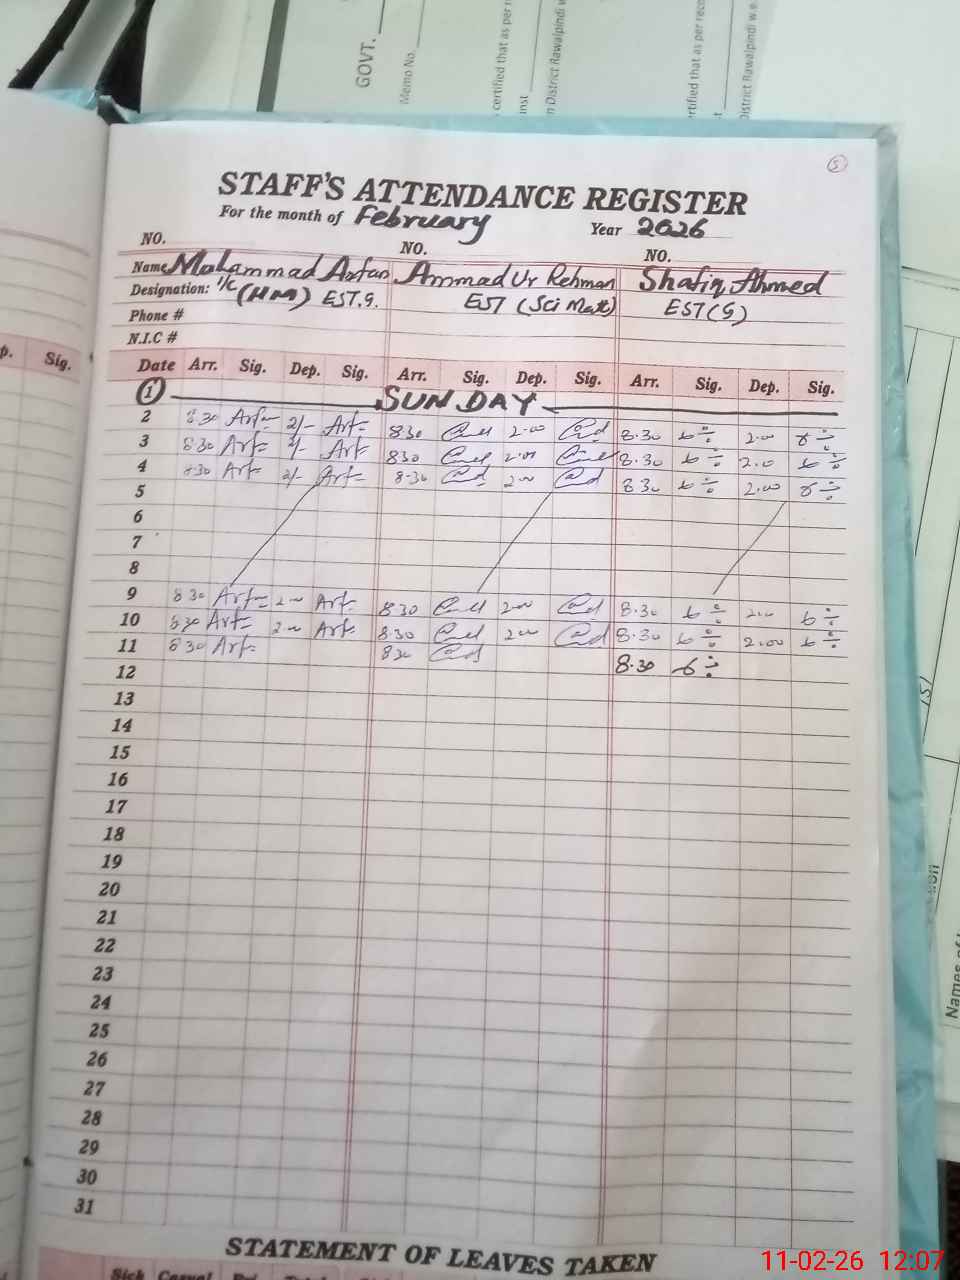 GOVT.
Memo No.
certified that as per
inst
n District Rawalpindi w
ertified that as per reco
District Rawalpindi w.e.
5
STAFF'S ATTENDANCE REGISTER
For the month of February Year 2026
NO. NO. NO.
Name Mohammad Arfan Ammad Ur Rehman Shafiq Ahmed
Designation: I/C (HM) EST.G. EST (Sci Math) EST(G)
Phone #
N.I.C #
p. Sig.
Date Arr. Sig. Dep. Sig. Arr. Sig. Dep. Sig. Arr. Sig. Dep. Sig.
1 SUNDAY
2 8:30 2/- 8:30 2:00 8.30 2.00
3 8:30 2/- 830 2:00 8.30 2.0
4 8:30 2/- 8:30 2:00 8 30 2.00
5
6
7
8
9 8 30 2:00 8:30 2:00 8.30 2.0
10 8:30 2:00 8:30 2:00 8.30 2.00
11 8:30 830 8.30
12
13
14
15
16
17
18
19
20
21
22
23
24
25
26
27
28
29
30
31
STATEMENT OF LEAVES TAKEN
Sick Casual
Names of
11-02-26 12:07